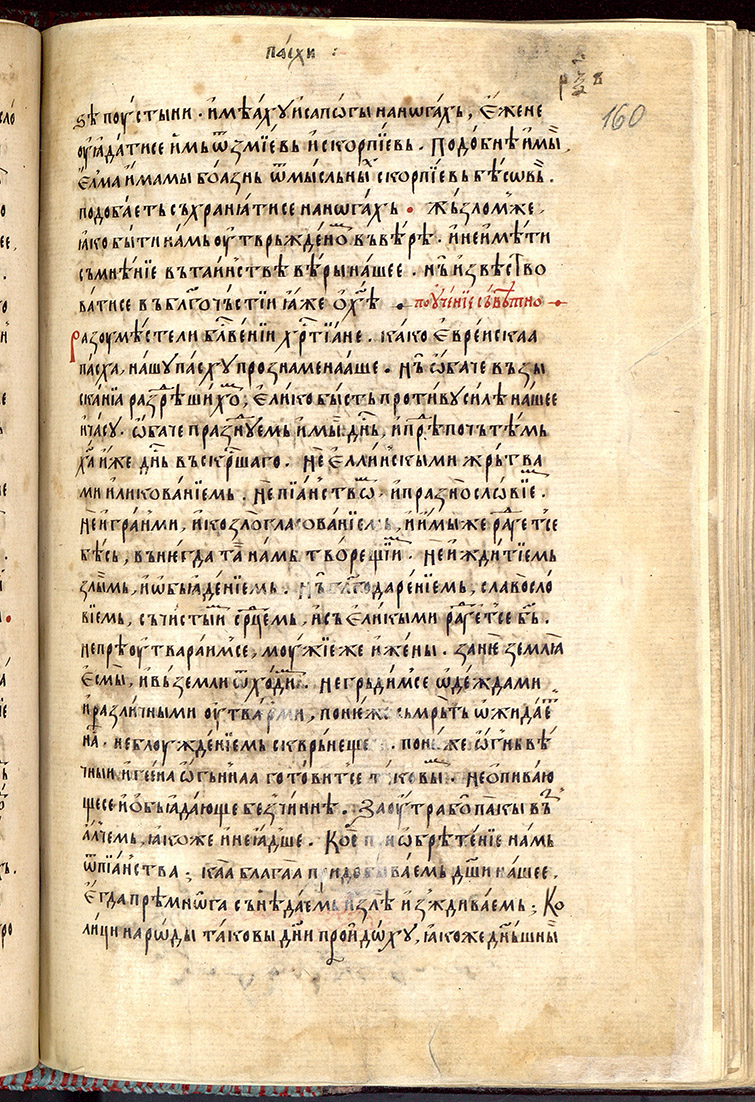 па́схи :
рѯ҃в
160
ѕѣ поу́стыни · и҆мѣа́хꙋ и҆ сапо́гы на нѡга́хь, є҆́же не
оу҆ꙗда́тисе и҆́мь ѿ змі́євь и҆ скорпі́євь . подо́бнѣ и҆ мы̏ ,
є҆лма и҆́мамы боꙗ́знь ѿ мы́сльны̑х скорпі́євь бѣ́сѡвь .
подоба́єть съхранꙗ́тисе на нѡга́хь · жь́зломже ,
ꙗ҆́ко бы́ти на́мь оу҆тврьжде́нѡм въ вѣ́рѣ . и҆ не и҆мѣ́ти
съмнѣ́нїе въ та́инствѣ вѣ́ры на́шее . нь̏ и҆звѣ́ство
ва́тисе въ бл҃гочь́стїи ꙗ҆́же о҆ хс҃ѣ · поу҆че́нїе съвѣ́тно
разоумѣ́сте ли бл҃ве́нїи хрⷭ҇тїа́не . ка́ко є҆вре́искаа
па́сха , на́шꙋ па́схꙋ прознаменава́ше . нь̏ ѡ҆ба́че възы
ска́нїа разрѣ́ши́хѡм ; є҆ли́ко бы́сть проти́вꙋ си́лѣ на́шее
и҆ ча́сꙋ . ѡ҆ба́че пра́знꙋемь и҆ мы̏ дн҃ь , и҆ прѣпочьте́мь
ха҃ и҆́же дн҃ь въскрⷭ҇шаго . не є҆́ллинскыми жрь́тва
ми и҆ ликова́нїемь . не пїа́нствѡм , и҆ празносло́вїем .
не и҆гра́нми , и҆ козлогласова́нїемь , и҆ и҆́мыже ра́дꙋетсе
бѣ́сь , вънегда та̏ на́мь творе́щїим . не и҆ждитїе́мь
злы́мь , и҆ ѡ҆быꙗде́нїемь . нь̏ бл҃годаре́нїемь , славосло́
вїемь , съ чи́стыим срⷣцемь , и҆ съ є҆ли́кыми ра́дꙋетсе бг҃ь .
не прѣоу҆твара́имсе , моу́жїе же и҆ жены . зане̏ землꙗ̏
є҆смы̏ , и҆ въ земли ѿхо́дим . не грьди́мсе ѡ҆де́ждами
и҆ разли́чными оу҆тва́рми , поне́же съмрь́ть ѡ҆жида́еть
на̏ . не блоужде́нїемь скврьне́ще се . поне́же ѡ҆́гнь вѣ́
чныи и҆ гее́на ѡ҆́гньнаа гото́витсе та́ковым . не ѡ҆пива́ю
щесе и҆ о҆быꙗда́юще безчи́ннѣ . за оу҆́тра бо па́кы въз
а́лчемь , ꙗ҆́коже и҆ не ꙗ҆́дше . ко́е при́ѡбрѣте́нїе на́мь
ѿ пїа́нства ; ка́а блага́а придобы́ваемь дш҃и на́шее ,
є҆гда прѣмнѡ́га сънѣда́емь и҆ злѣ̏ и҆зждива́емь ; ко
ли́ци наро́ды такѡвы дн҃и проидо́хꙋ , ꙗ҆́коже дн҃ьшныи